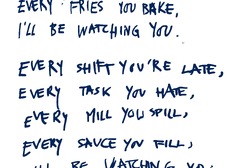 EVERY FRIES YOU BAKE,
I'LL BE WATCHING YOU.
EVERY SHIFT YOU'RE LATE,
EVERY TASK YOU HATE,
EVERY MILL YOU SPILL,
EVERY SAUCE YOU FILL,
I'LL BE WATCHING YOU